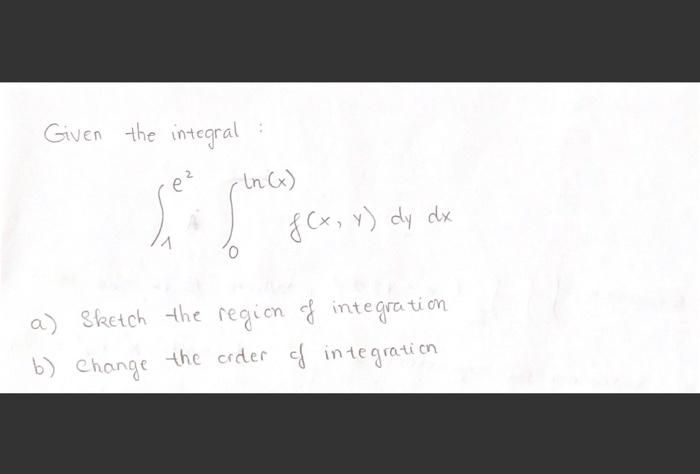 Given the integral :
∫₁^e² ∫₀^ln(x) f(x, y) dy dx
a) Sketch the region of integration
b) change the order of integration